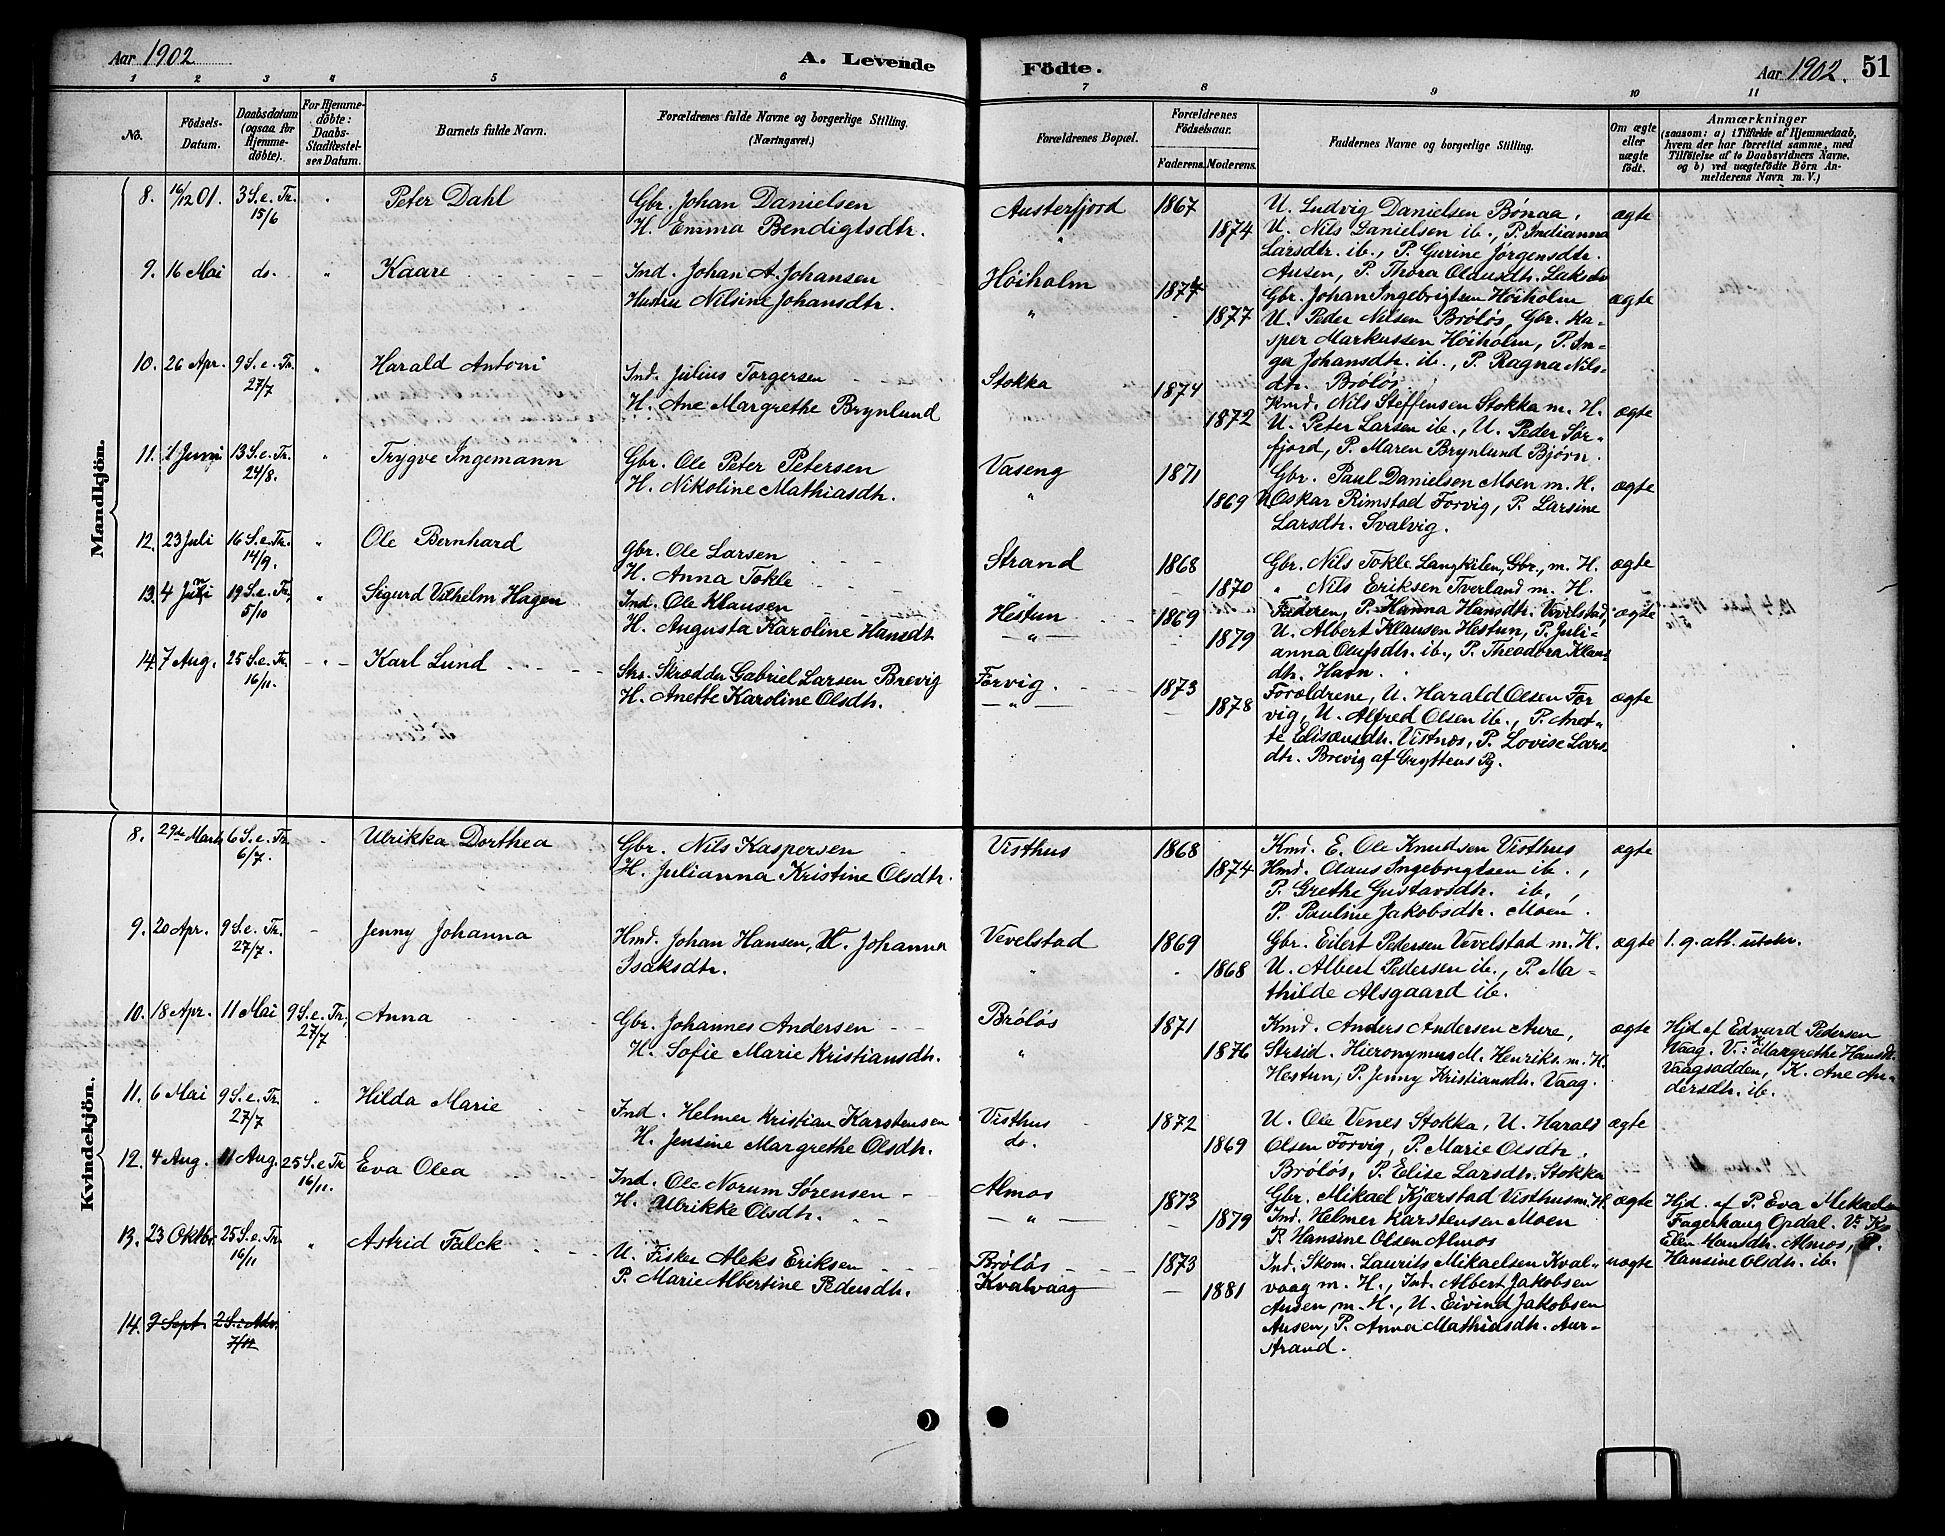 Aar 1902
A. Levende
Födte.
Aar 1902.
51
1 2 3 4 5 6 7 8 9 10 11
No.
Födsels-Datum.
Daabsdatum (ogsaa for Hjemme-döbte).
For Hjemme-döbte: Daabs-Stadfæstel-ses Datum.
Barnets fulde Navn.
Forældrenes fulde Navne og borgerlige Stilling.
(Næringsvei.)
Forældrenes Bopæl.
Forældrenes Födselsaar.
Faderens. Moderens.
Faddernes Navne og borgerlige Stilling.
Om ægte eller uægte födt.
Anmærkninger
(saasom: a) i Tilfælde af Hjemmedaab,
hvem der har forrettet samme, med
Tilföielse af to Daabsvidners Navne,
og b) ved uægtefödte Börn An-
melderens Navn m. V.)
Mandkjön.
8. 16/12 01. 3 S. e. Tr. 15/6 " Peter Dahl
Gbr. Johan Danielsen
H. Emma Bendigtsdtr.
Austerfjord 1867
" 1874
U. Ludvig Danielsen Bönaa,
U. Nils Danielsen ib., P. Indianna
Larsdtr. ib., P. Gurine Jörgensdtr.
Ausen, P. Thora Olausdtr. Laksdal
ægte
9. 16 Mai do. " Kaare
Ind. Johan A. Johansen
Hustru Nilsine Johansdtr.
Höiholm 1877
" 1877
Gbr. Johan Ingebrigtsen Höiholm
U. Peder Nilsen Brölös, Gbr. Ka-
sper Markussen Höiholm, P. In-
ga Johansdtr. ib., P. Ragna Nils-
dtr. Brölös.
ægte
10. 26 Apr. 9 S. e. Tr. 27/7 " Harald Antoni
Ind. Julius Torgersen
H. Ane Margrethe Brynlund
Stokka 1874
1872
Kmd. Nils Steffensen Stokka m. H.
U. Peter Larsen ib., U. Peder Sör-
fjord, P. Maren Brynlund Bjórn.
ægte
11. 1 Juni 13 S. e. Tr. 24/8. " Trygve Ingemann
Gbr. Ole Peter Petersen
H. Nikoline Mathiasdtr.
Vaseng 1871
" 1869
Gbr. Paul Danielsen Moen m. H.
U. Oskar Rimstad Forvig, P. Larsine
Larsdtr. Svalvig.
ægte
12. 23 Juli 16 S. e. Tr. 14/9. " Ole Bernhard
Gbr. Ole Larsen
H. Anna Tokle
Strand 1868
" 1870
Gbr. Nils Tokle Langkilen, Gbr., m. H.
" Nils Eriksen Tverland m. H.
ægte
13. 4 Juni 19 S. e. Tr. 5/10 " Sigurd Vilhelm Hagen
Ind. Ole Klausen
H. Augusta Karoline Hansdt.
Hestun 1869
" 1879
Faderen, P. Hanna Hansdtr. Vevelstad,
U. Albert Klausen Hestun, P. Juli-
anna Olufsdtr. ib., P. Theodora Klaus-
dtr. Havn.
ægte
14. 7 Aug. 25 S. e. Tr. 16/11. " Karl Lund
Str. Skrædder Gabriel Larsen Brevig
H. Anette Karoline Olsdtr.
Forvig. 1873
" 1878
Forældrene, U. Harald Olsen For-
vig, U. Alfred Olsen ib., P. Anet-
te Elisæusdtr. Vistnes, P. Lovise Lars-
dtr. Brevig af Gryttens Pg.
ægte
Kvindekjön.
8. 29de Marts 6 S. e. Tr. 6/7. Ulrikka Dorthea
Gbr. Nils Kaspersen
H. Julianna Kristine Olsdtr.
Visthus 1868
1874
Kmd. E. Ole Knudsen Visthus
Hmd. Olaus Ingebrigtsen ib.,
P. Grethe Gustavsdtr. ib.,
P. Pauline Jakobsdtr. Moen.
ægte
9. 20 Apr. 9 S. e. Tr. 27/7. Jenny Johanna
Hmd. Johan Hansen, H. Johanna
Isaksdtr.
Vevelstad 1869
" 1868
Gbr. Eilert Pedersen Vevelstad m. H.
U. Albert Pedersen ib., P. Ma-
thilde Alsgaard ib.
ægte 1. g. att. utstr.
10. 18 Apr. 11 Mai 9 S. e. Tr. 27/7 Anna
Gbr. Johannes Andersen
H. Sofie Marie Kristiansdtr.
Brölös 1871
" 1876
Kmd. Anders Andersen Aure,
Strsid. Hieronymus M. Henriks. m. H.
Hestun, P. Jenny Kristiansdtr. Vaag.
ægte
Hjd. af Edvard Pedersen
Vaag. V.: K. Margrethe Hansdt.
Vaagsodden, K. Ane An-
dersdtr. ib.
11. 6 Mai 9 S. e. Tr. 27/7 Hilda Marie
Ind. Helmer Kristian Karstensen
H. Jensine Margrethe Olsdtr.
Visthus 1872
do. 1869
U. Ole Venes Stokka, U. Harald
Olsen Forvig, P. Marie Olsdtr.
Brölös, P. Elise Larsdtr. Stokka
ægte
12. 4 Aug. 11 Aug. 25 S. e. Tr. 16/11. Eva Olea
Ind. Ole Norum Sörensen
H. Ulrikke Olsdtr.
Almos 1873
" 1879
Gbr. Mikael Kjærstad Visthus m. H.
Ind. Helmer Karstensen Moen
P. Hansine Olsen Almos
ægte
Hjd. af P. Eva Mekaels
Fagerhaug Opdal. V: K.
Ellen Hansdtr. Almos, P.
Hansine Olsdtr. ib.
13. 23 Oktbr. 25 S. e. Tr. 16/11 " Astrid Falck
U. Fisker Aleks Eriksen
P. Marie Albertine Pedersdtr.
Brölös 1873
Kvalvaag 1881
Ind. Skom. Laurits Mikaelsen Kval-
vaag m. H., Ind. Albert Jakobsen
Ausen, m. H., U. Eivind Jakobsen
Ausen, P. Anna Mathiasdtr. Aur-
strand.
uægte
14. 7 Sept. 2 S. i Adv. 7/12